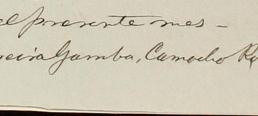 el presente mes -
neira Gamba, Camacho R